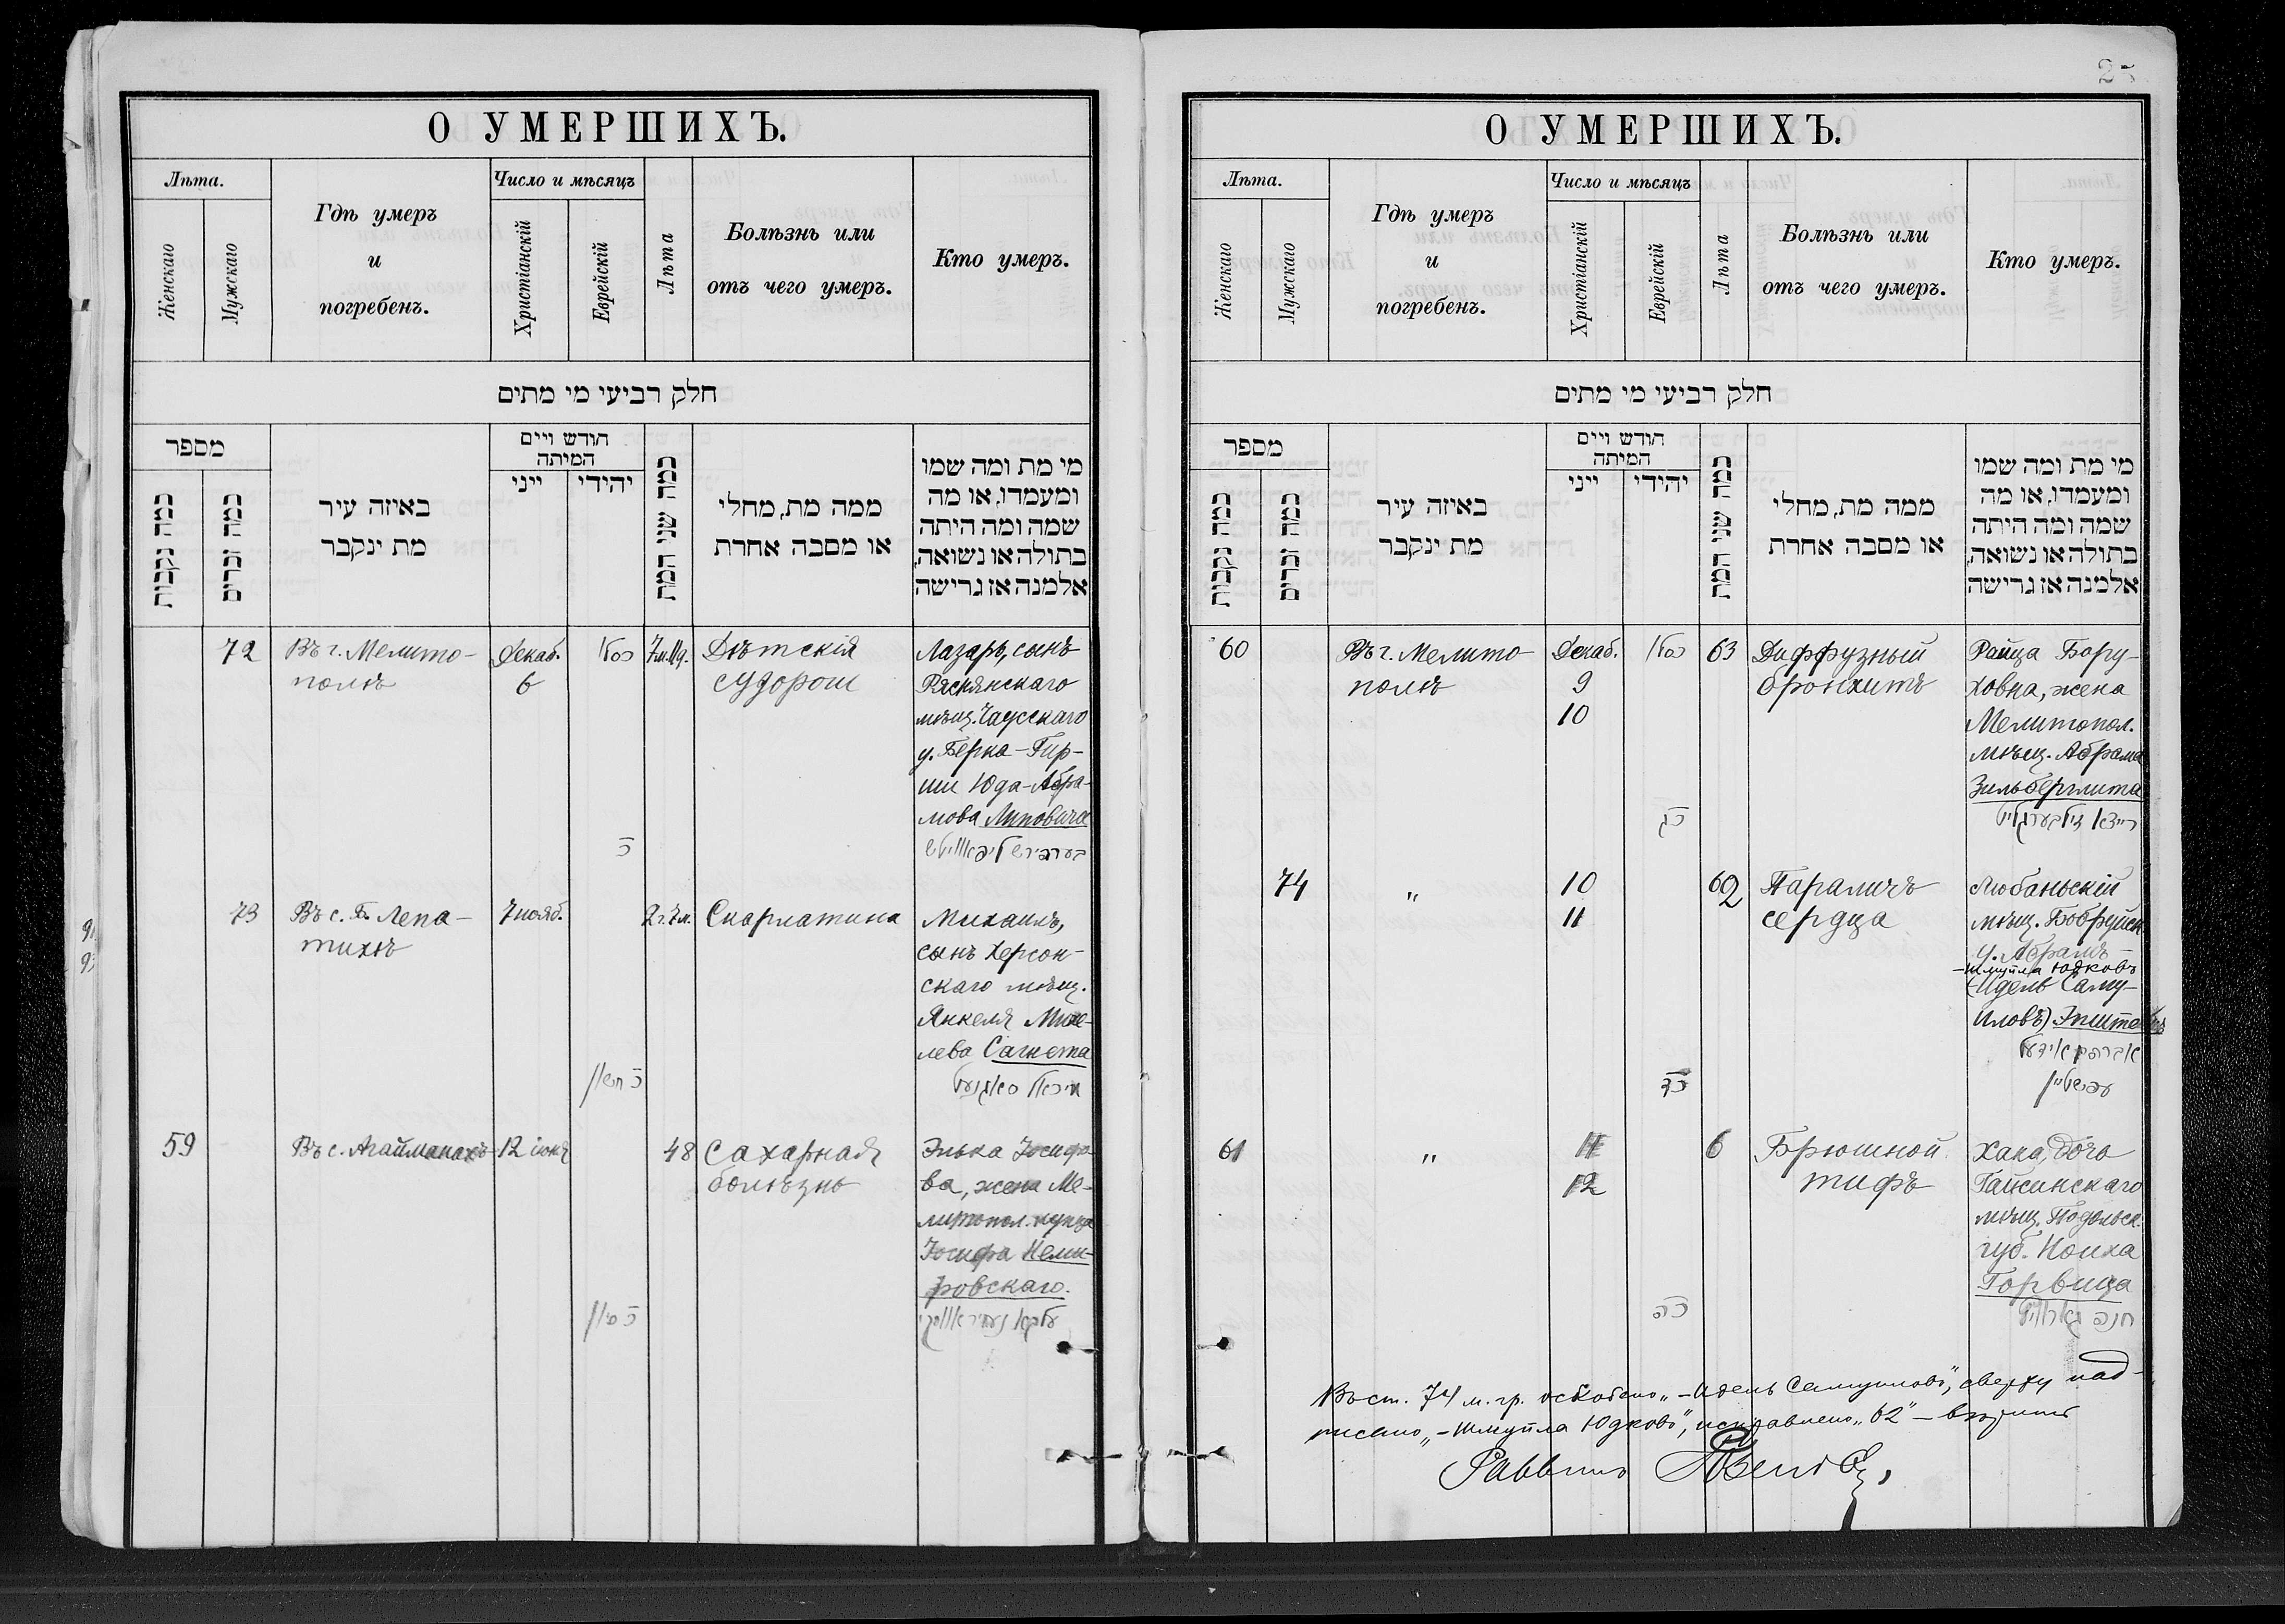 О УМЕРШИХЪ.
Лѣта.
Женскаго
Мужскаго
Гдѣ умеръ
и
погребенъ.
Число и мѣсяцъ
Христіанскій
Еврейскій
Лѣта
Болѣзнь или
отъ чего умеръ.
Кто умеръ.
חלק רביעי מי מתים
מספר
כמה נקבות
כמה זכרים
באיזה עיר
מת ינקבר
חודש ויים
המיתה
ייני
יהידי
כמה שני המת
ממה מת, מחלי
או מסבה אחרת
מי מת ומה שמו
ומעמדו, או מה
שמה ומה היתה
בתולה או נשואה,
אלמנה אז גרישה
72
Въ г. Мелито-
полѣ
Декаб.
6
כסלו
כ
7м.11д.
Дѣтскія
судорош
Лазарь, сынъ
Ряснянскаго
мѣщ. Чаусскаго
у. Берка-Гир-
ши Юда-Абра-
мова Липовича
73
Въ с. Б. Лепа-
тихѣ
7 нояб.
כ חשון
2г.7м.
Скарлатина
Михаилъ,
сынъ Херсон-
скаго мѣщ.
Янкеля Михе-
лева Сагнета
מיכאל סאגנעט
59
Въ с. Агайманахъ
12 іюня
כ סיון
48
Сахарная
болѣзнь
Элька Іосифо-
ва, жена Ме-
литопол. купца
Іосифа Неми-
ровскаго.
О УМЕРШИХЪ.
Лѣта.
Женскаго
Мужскаго
Гдѣ умеръ
и
погребенъ.
Число и мѣсяцъ
Христіанскій
Еврейскій
Лѣта
Болѣзнь или
отъ чего умеръ.
Кто умеръ.
חלק רביעי מי מתים
מספר
כמה נקבות
כמה זכרים
באיזה עיר
מת ינקבר
חודש ויים
המיתה
ייני
יהידי
כמה שני המת
ממה מת, מחלי
או מסבה אחרת
מי מת ומה שמו
ומעמדו, או מה
שמה ומה היתה
בתולה או נשואה,
אלמנה אז גרישה
60
Въ г. Мелито
полѣ
Декаб.
9
10
כסלו
כג
63
Диффузный
бронхитъ
Райца Бору-
ховна, жена
Мелитопол.
мѣщ. Абрама
Зильберглита
רייצא זילבערגליט
74
"
10
11
כד
62
Параличъ
сердца
Любаньскій
мѣщ. Бобруйск
у. Абрамъ-
-Шмуйла Юдковъ
(Идель Саму-
иловъ) Эпштейнъ
אברהם אידעל
עפשטיין
61
"
11
12
כה
6
Брюшной
тифъ
Хана, дочь
Гайсинскаго
мѣщ. Подольск.
губ. Нойха
Горвица
חנה גארוויץ
Въ ст. 74 м. гр. оскоблено „-Идель Самуиловъ", сверху над-
писано „-Шмуйла Юдковъ", исправлено „62" - вѣрить
Раввинъ